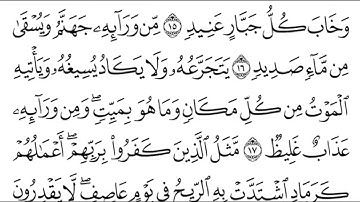 وَخَابَ كُلُّ جَبَّارٍ عَنِيدٍ ١٥ مِّن وَرَآئِهِۦ جَهَنَّمُ وَيُسْقَىٰ
مِن مَّآءٍ صَدِيدٍ ١٦ يَتَجَرَّعُهُۥ وَلَا يَكَادُ يُسِيغُهُۥ وَيَأْتِيهِ
ٱلْمَوْتُ مِن كُلِّ مَكَانٍ وَمَا هُوَ بِمَيِّتٍ ۖ وَمِن وَرَآئِهِۦ
عَذَابٌ غَلِيظٌ ١٧ مَّثَلُ ٱلَّذِينَ كَفَرُوا۟ بِرَبِّهِمْ ۖ أَعْمَٰلُهُمْ
كَرَمَادٍ ٱشْتَدَّتْ بِهِ ٱلرِّيحُ فِى يَوْمٍ عَاصِفٍ ۖ لَّا يَقْدِرُونَ